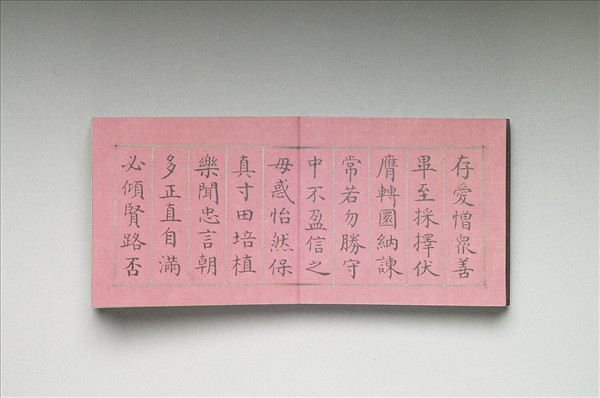 存愛憎衆善
畢至採擇伏
膺轉圜納諫
常若勿勝守
中不盈信之
毋惑怡然保
真寸田培植
樂聞忠言朝
多正直自滿
必傾賢路否